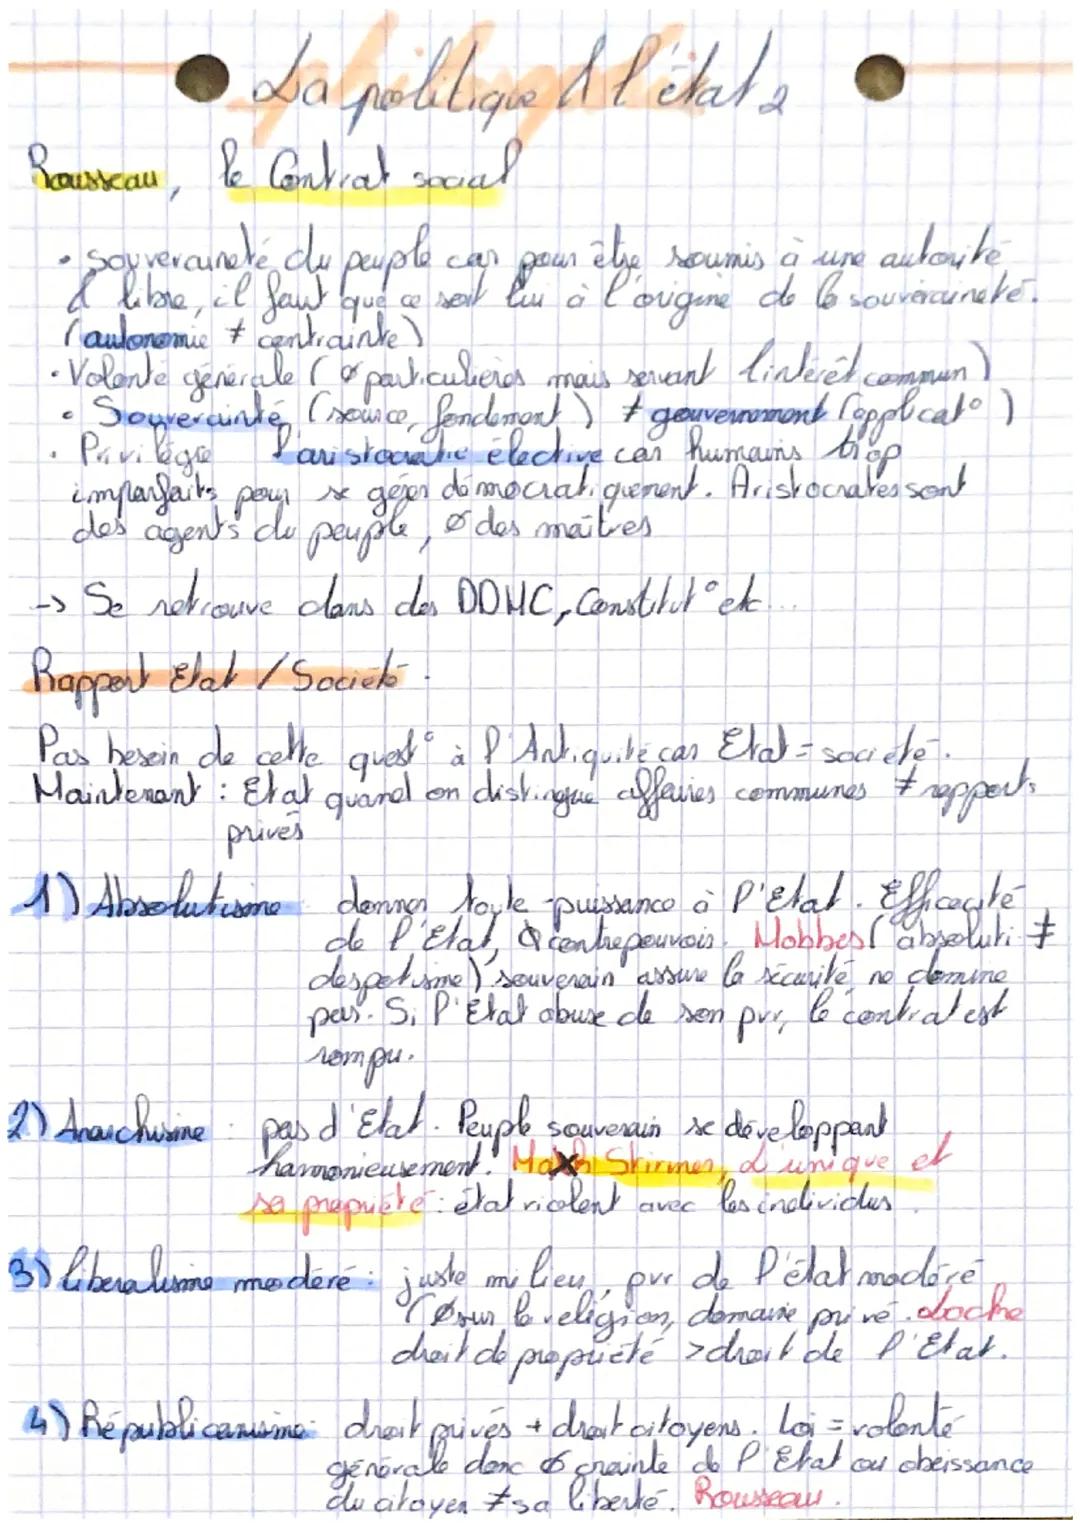 La politique & l'état 2
Rousseau, le Contrat social
• souveraineté du peuple car pour être soumis à une autorité
& libre, il faut que ce soit lui à l'origine de la souveraineté.
(autonomie ≠ contrainte)
• Volonté générale (Ø particulières mais servant l'intérêt commun)
• Souverainté (source, fondement) ≠ gouvernement (applicat°)
• Privilégie l'aristocratie élective car humains trop
imparfaits pour se gérer démocratiquement. Aristocrates sont
des agents du peuple, Ø des maîtres
-> Se retrouve dans des DDHC, Constitut° etc...
Rapport Etat / Société.
Pas besoin de cette quest° à l'Antiquité car Etat = société.
Maintenant : Etat quand on distingue affaires communes ≠ rapports
privés
1) Absolutisme donner toute-puissance à l'Etat. Efficacité
de l'Etat, Ø contrepouvoir. Hobbes (absoluti ≠
despotisme) souverain assure la sécurité, ne domine
pas. Si l'Etat abuse de son pvr, le contrat est
rompu.
2) Anarchisme : pas d'Etat. Peuple souverain se développant
harmonieusement. Stirner, L'unique et
sa propriété : état violent avec les individus.
3) liberalisme modéré : juste milieu, pvr de l'état modéré
(Ø sur la religion, domaine privé. Locke
droit de propriété > droit de l'Etat.
4) Républicanisme : droit privés + droit citoyens. Loi = volonté
générale donc Ø crainte de l'Etat ou obeissance
du citoyen ≠ sa liberté. Rousseau.